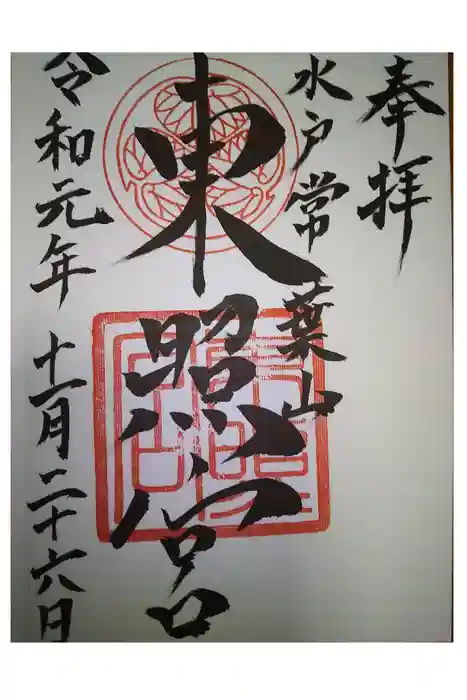 奉拝
水戸常葉山
東照宮
令和元年 十一月二十六日